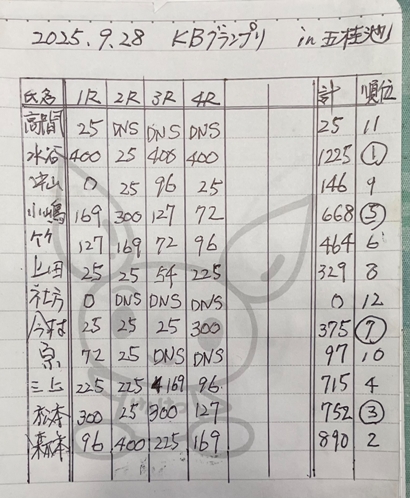 2025.9.28 KBグランプリ in 五桂池
氏名 1R 2R 3R 4R 計 順位
高間 25 DNS DNS DNS 25 11
水谷 400 25 400 400 1225 ①
0 25 96 25 146 9
小嶋 169 300 127 72 668 ⑤
竹 127 169 72 96 464 6
上田 25 25 54 225 329 8
0 DNS DNS DNS 0 12
今村 25 25 25 300 375 ⑦
京 72 25 DNS DNS 97 10
三上 225 225 169 96 715 4
松本 300 25 300 127 752 ③
96 400 225 169 890 2